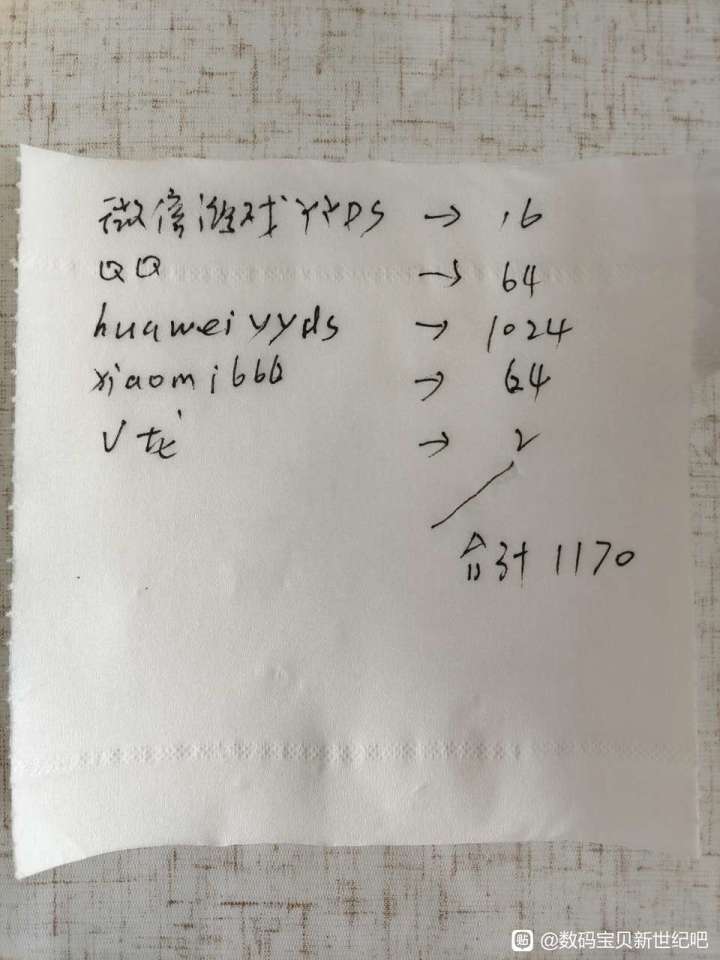 微信游戏YYDS → 16
QQ → 64
huaweiyyds → 1024
xiaomi666 → 64
V龙 → 2
合计 1170
贴 @数码宝贝新世纪吧